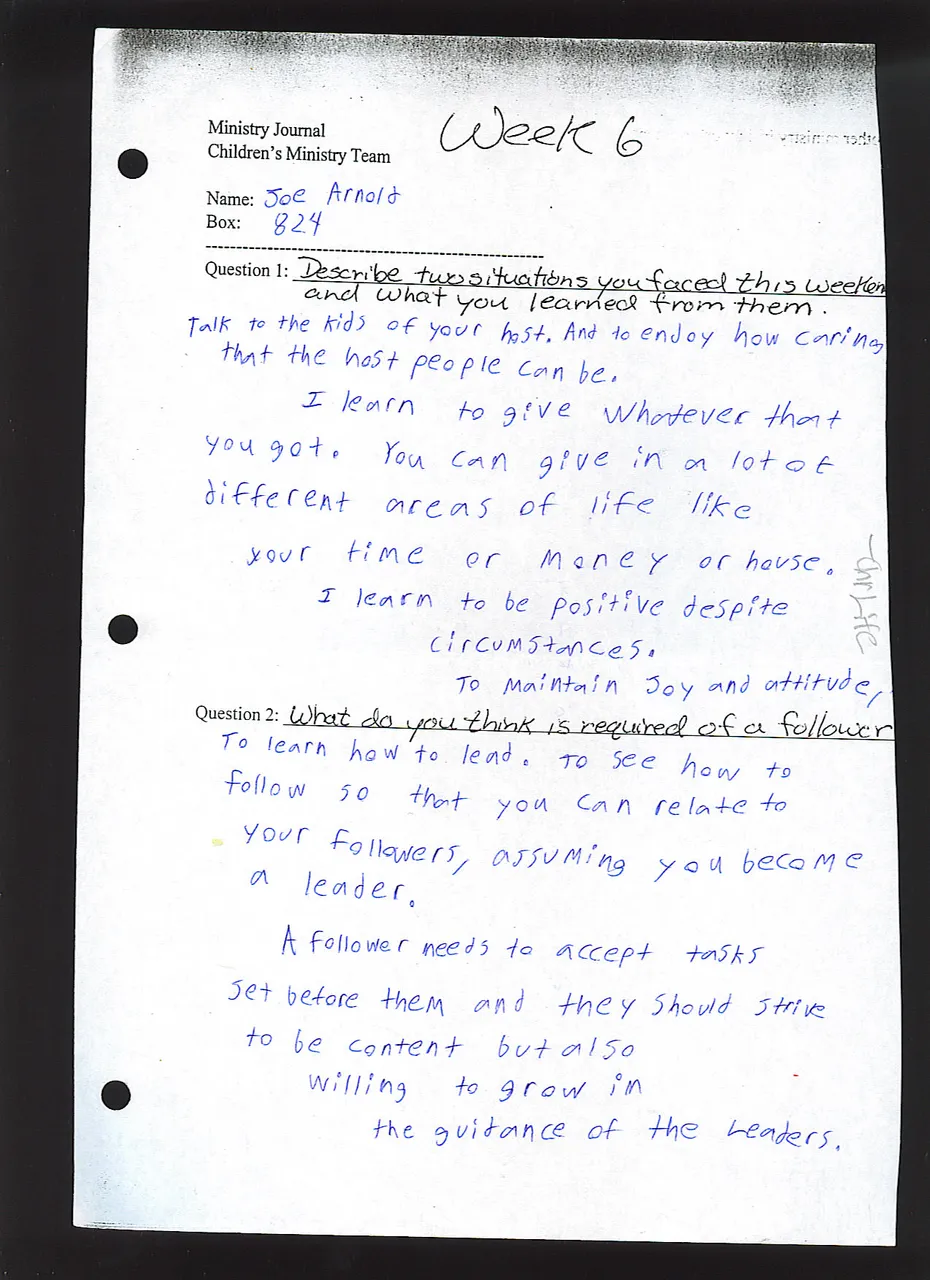 Week 6
Ministry Journal
Children's Ministry Team
Name: Joe Arnold
Box: 824
Question 1: Describe two situations you faced this weeken
and what you learned from them.
Talk to the kids of your host. And to enjoy how caring
that the host people can be.
I learn to give whatever that
you got. You can give in a lot of
different areas of life like
your time or money or house.
I learn to be positive despite
circumstances.
To maintain Joy and attitude,
Question 2: What do you think is required of a follower
To learn how to lead. To see how to
follow so that you can relate to
your followers, assuming you become
a leader.
A follower needs to accept tasks
set before them and they should strive
to be content but also
willing to grow in
the guidance of the Leaders.